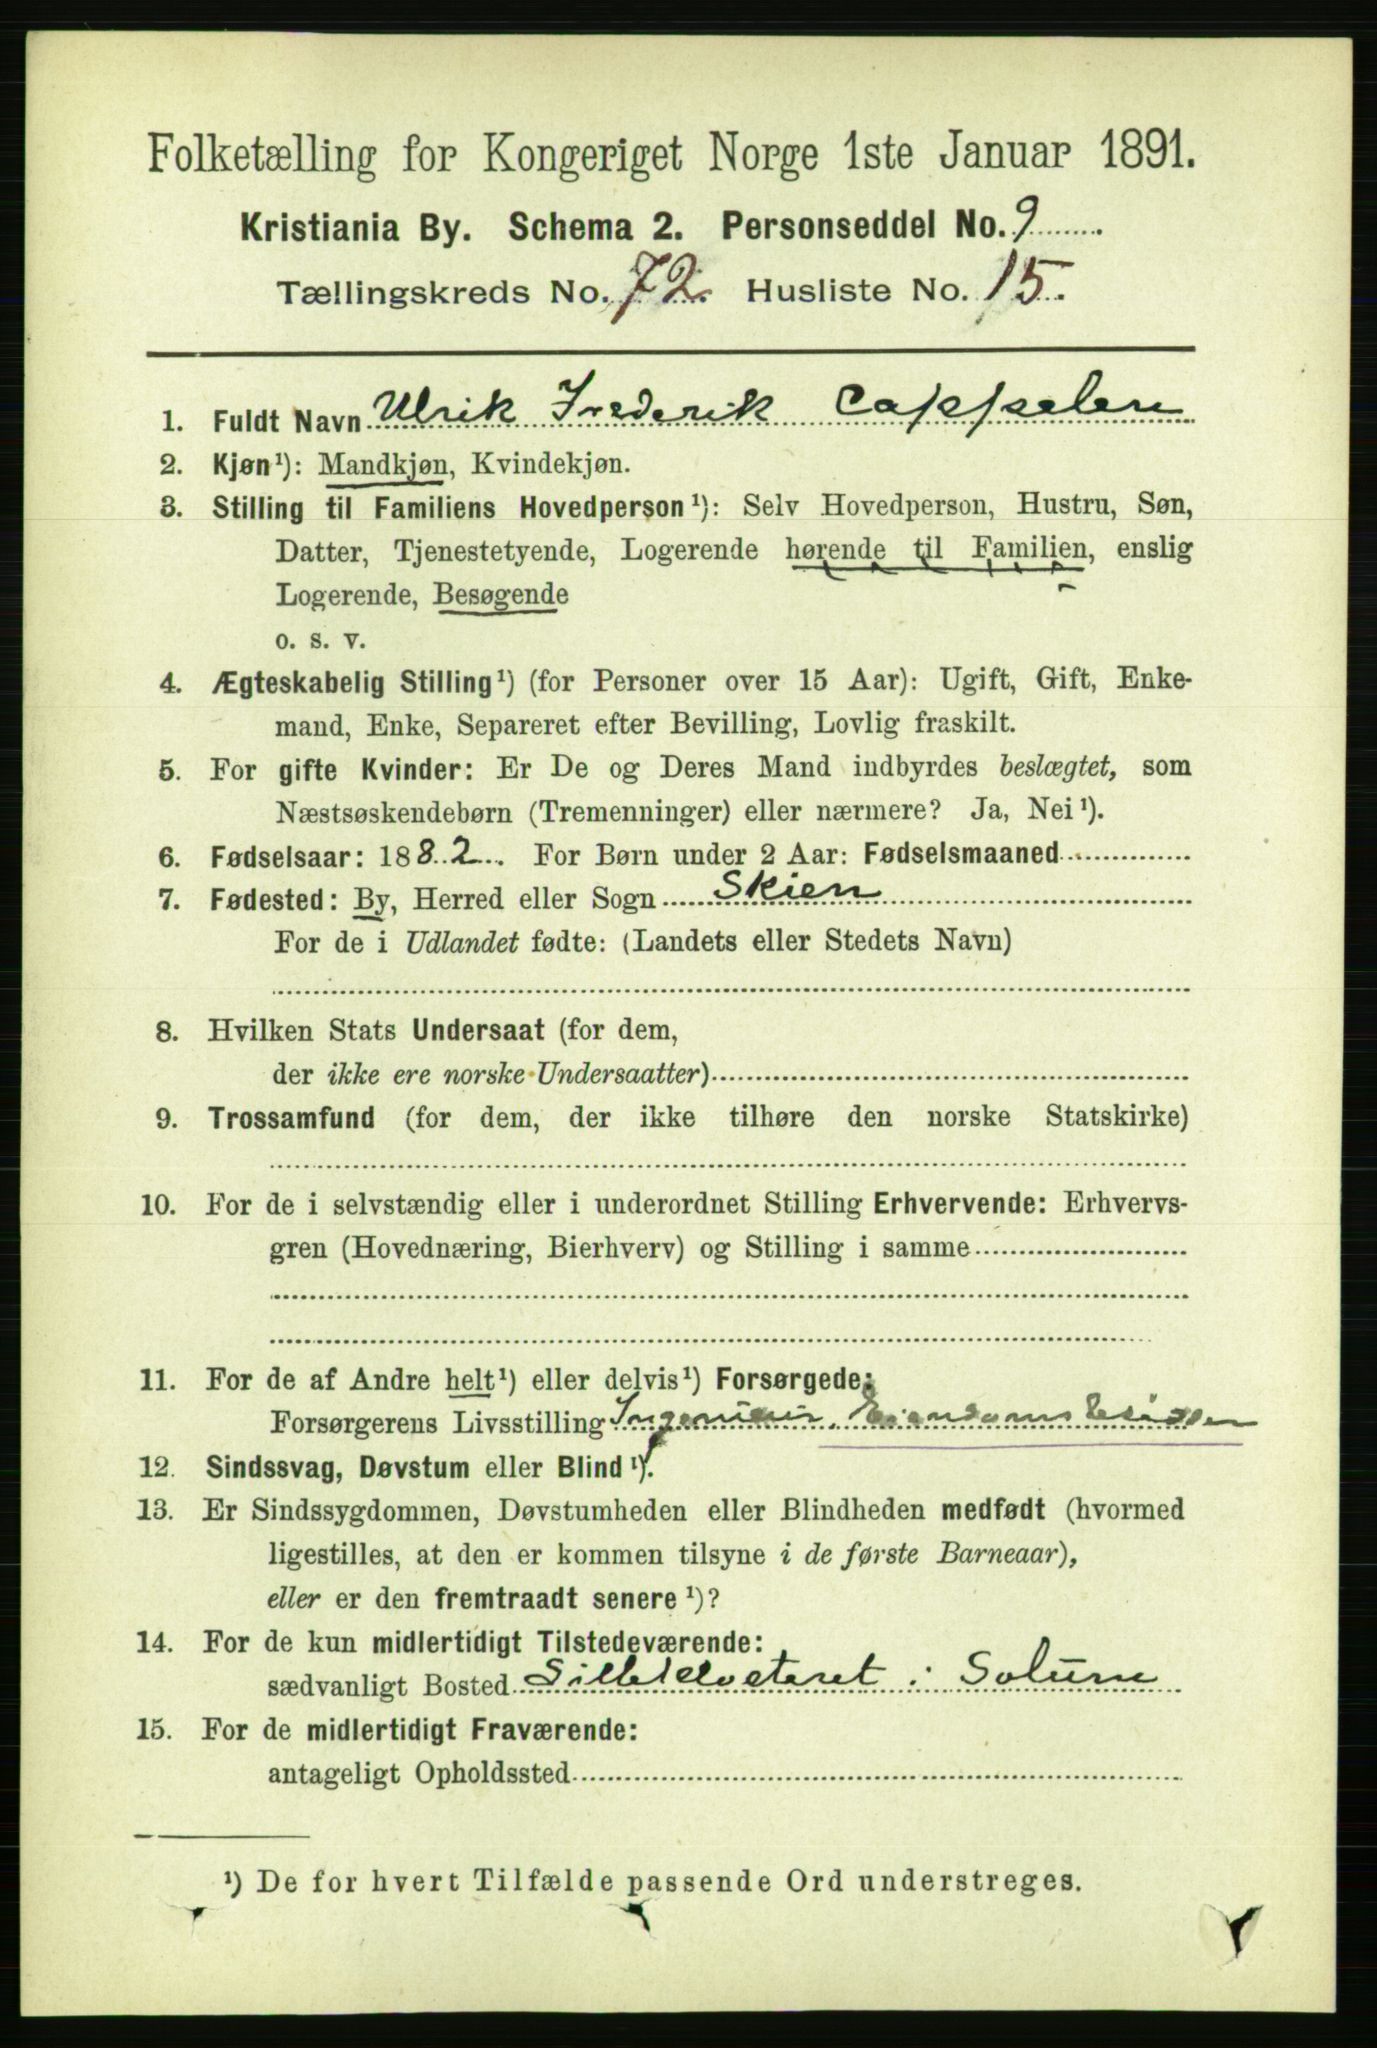 Folketælling for Kongeriget Norge 1ste Januar 1891.
Kristiania By. Schema 2. Personseddel No. 9
Tællingskreds No. 72. Husliste No. 15.
1. Fuldt Navn Ulrik Frederik Cappelen
2. Kjøn¹): Mandkjøn, Kvindekjøn.
3. Stilling til Familiens Hovedperson¹): Selv Hovedperson, Hustru, Søn,
Datter, Tjenestetyende, Logerende hørende til Familien, enslig
Logerende, Besøgende
o. s. v.
4. Ægteskabelig Stilling¹) (for Personer over 15 Aar): Ugift, Gift, Enke-
mand, Enke, Separeret efter Bevilling, Lovlig fraskilt.
5. For gifte Kvinder: Er De og Deres Mand indbyrdes beslægtet, som
Næstsøskendebørn (Tremenninger) eller nærmere? Ja, Nei¹).
6. Fødselsaar: 1882. For Børn under 2 Aar: Fødselsmaaned
7. Fødested: By, Herred eller Sogn Skien
For de i Udlandet fødte: (Landets eller Stedets Navn)
8. Hvilken Stats Undersaat (for dem,
der ikke ere norske Undersaatter)
9. Trossamfund (for dem, der ikke tilhøre den norske Statskirke)
10. For de i selvstændig eller i underordnet Stilling Erhvervende: Erhvervs-
gren (Hovednæring, Bierhverv) og Stilling i samme
11. For de af Andre helt¹) eller delvis¹) Forsørgede:
Forsørgerens Livsstilling Ingeniør, Eiendomsbesidder
12. Sindssvag, Døvstum eller Blind¹).
13. Er Sindssygdommen, Døvstumheden eller Blindheden medfødt (hvormed
ligestilles, at den er kommen tilsyne i de første Barneaar),
eller er den fremtraadt senere¹)?
14. For de kun midlertidigt Tilstedeværende:
sædvanligt Bosted i Solum
15. For de midlertidigt Fraværende:
antageligt Opholdssted
¹) De for hvert Tilfælde passende Ord understreges.